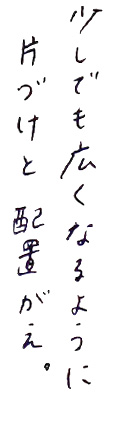 少しでも広くなるように
片づけと配置がえ。